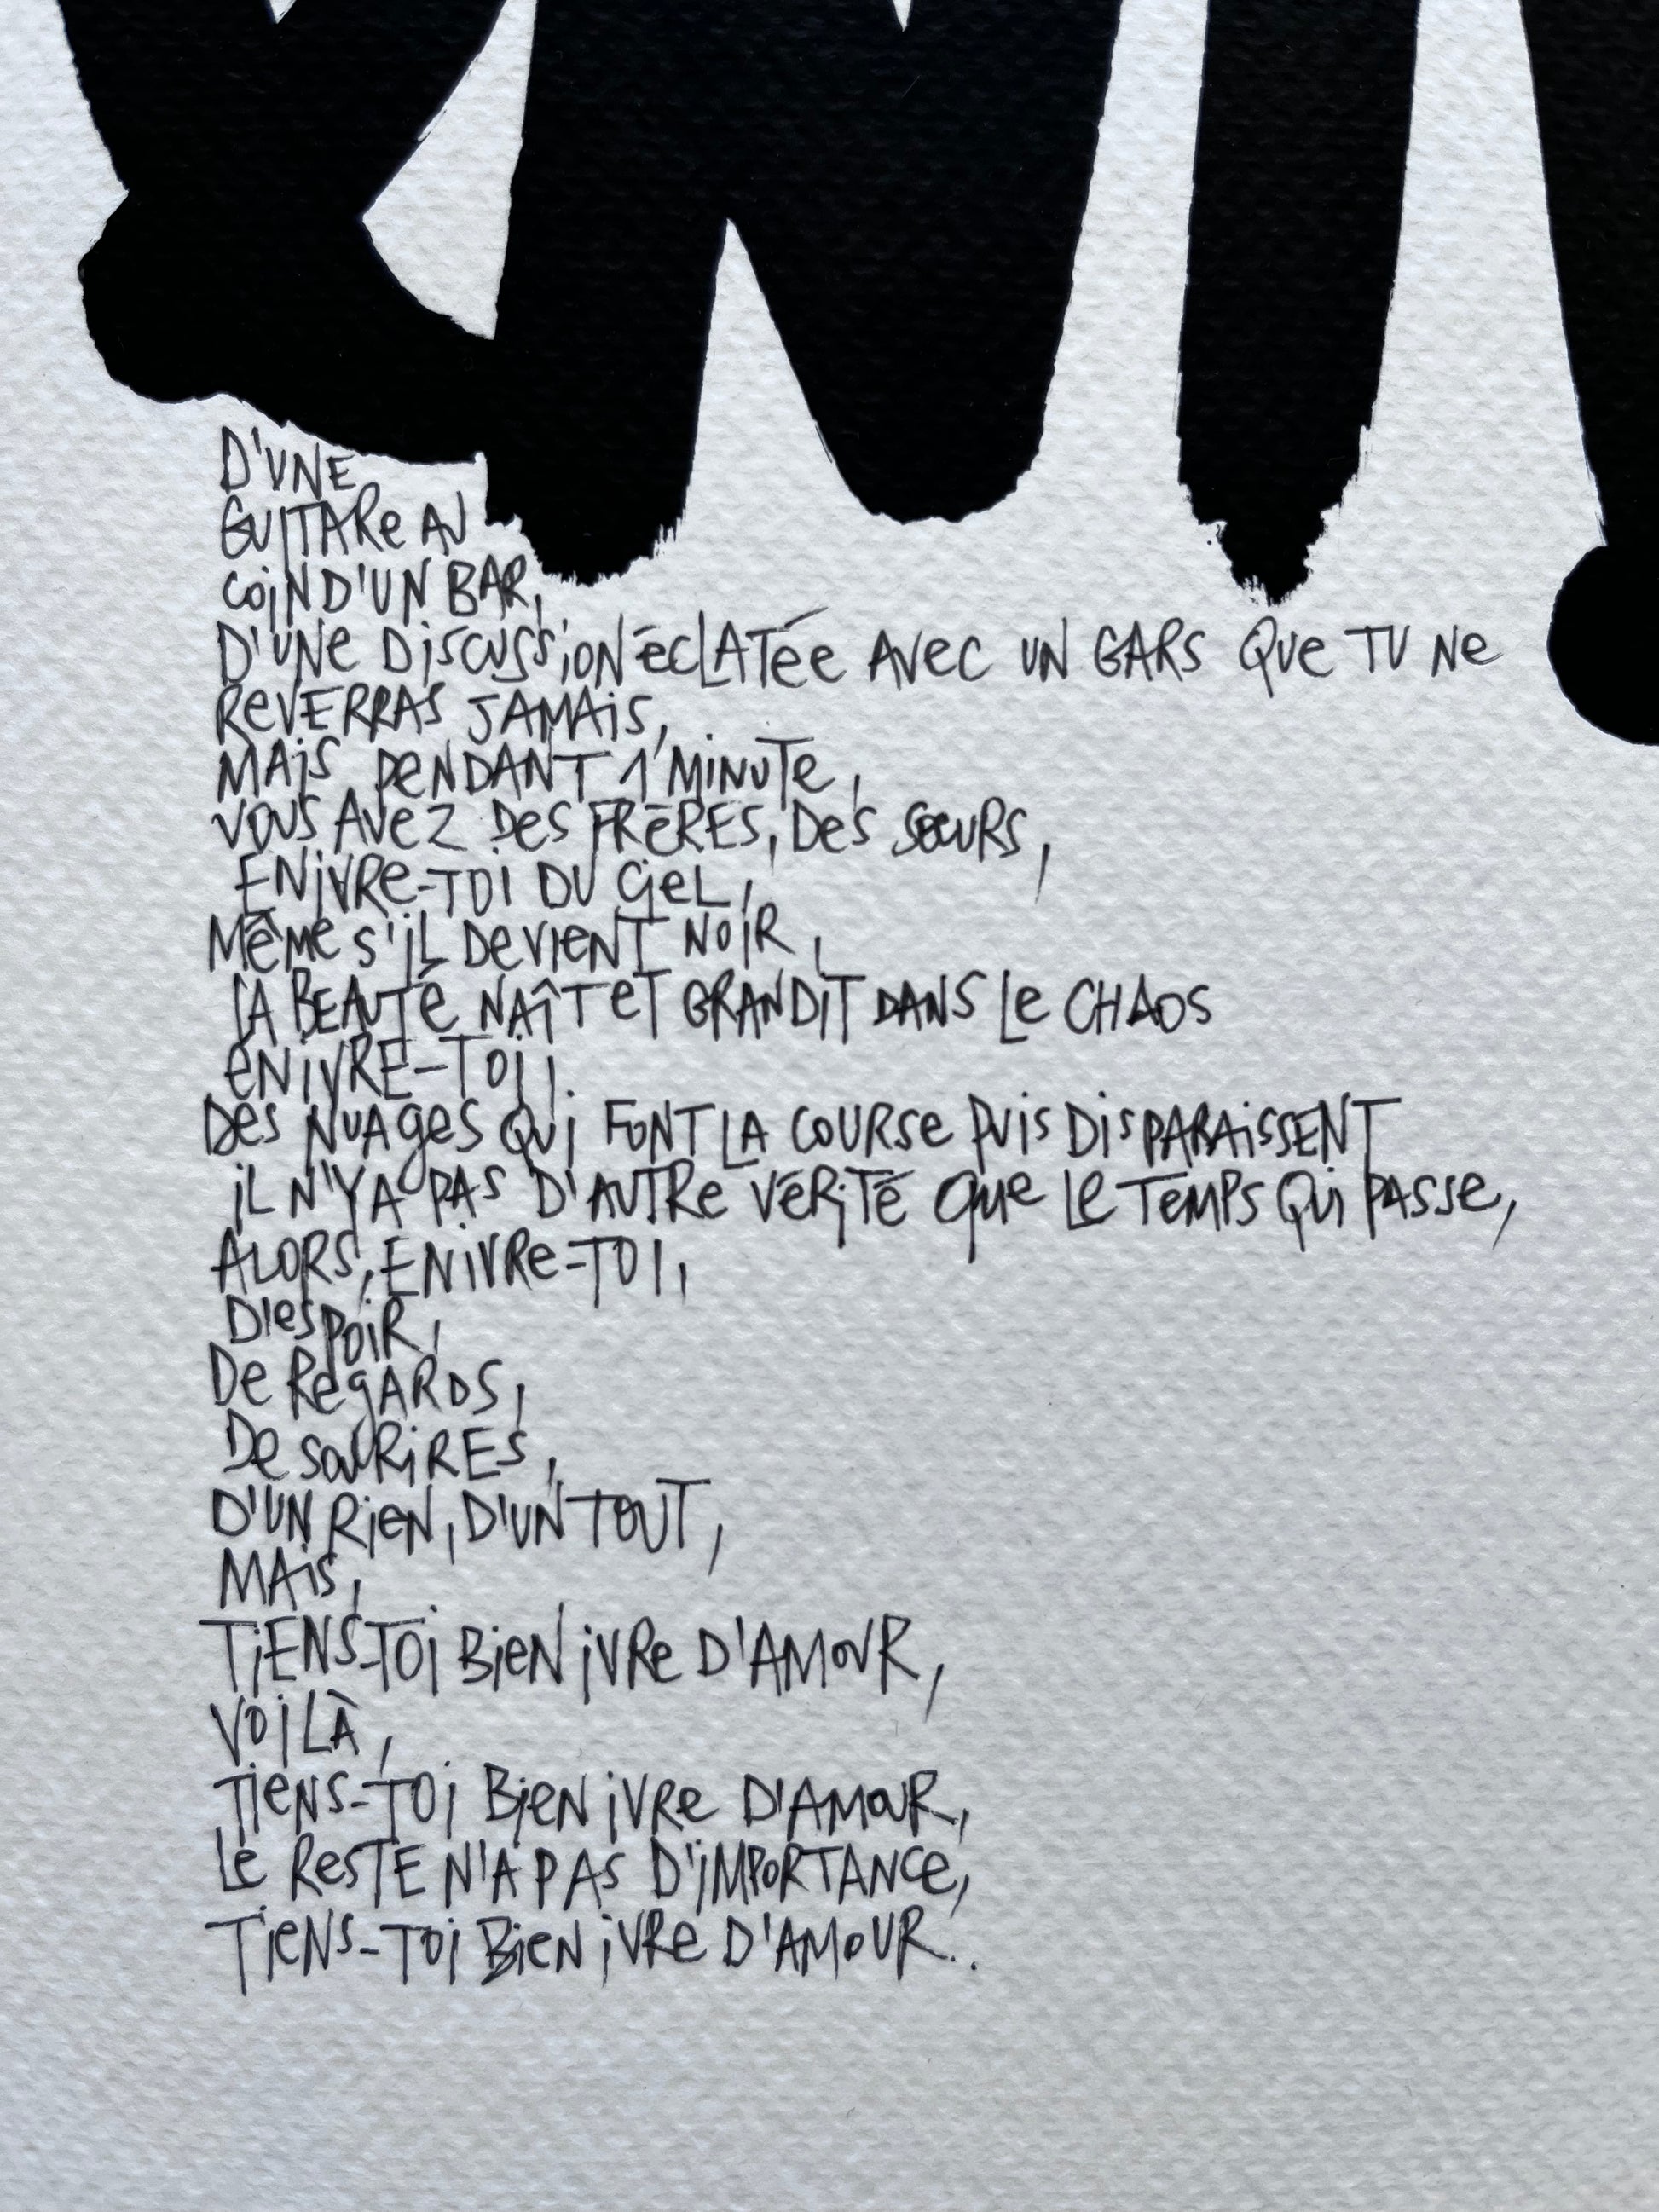 D'UNE
GUITARe AU
COiN D'UN BAR,
D'UNe DiSCUSSiON éCLATée AVeC UN GARS QUe TU Ne
ReVERRAS JAMAiS,
MAiS PeNDANT 1 MiNUTe,
VOUS AVeZ DeS FRèRES, DeS SœURS,
ENiVRe-TOI DU CieL,
MêMe S'iL DeVIeNT NOiR,
LA BEAUTé NAîT eT GRANDiT DANS Le CHAOS
eNiVRE-TOi,
DeS NUAgeS QUi FONT LA COURSe PUiS DiSPARAiSSENT
iL N'Y A PAS D'AUTRe VéRiTé QUe Le TeMPS QUi PASSe,
ALORS, ENiVRe-TOI,
D'eSPOiR,
De ReGARDS,
De SOURiRES,
D'UN RieN, D'UN TOUT,
MAiS,
TiENS-TOi BieN iVRe D'AMOUR,
VOiLÀ,
TIeNS-TOi BieN iVRe D'AMOUR,
Le ReSTE N'A PAS D'iMPORTANCe,
TieNS-TOi BieN iVRe D'AMOUR..